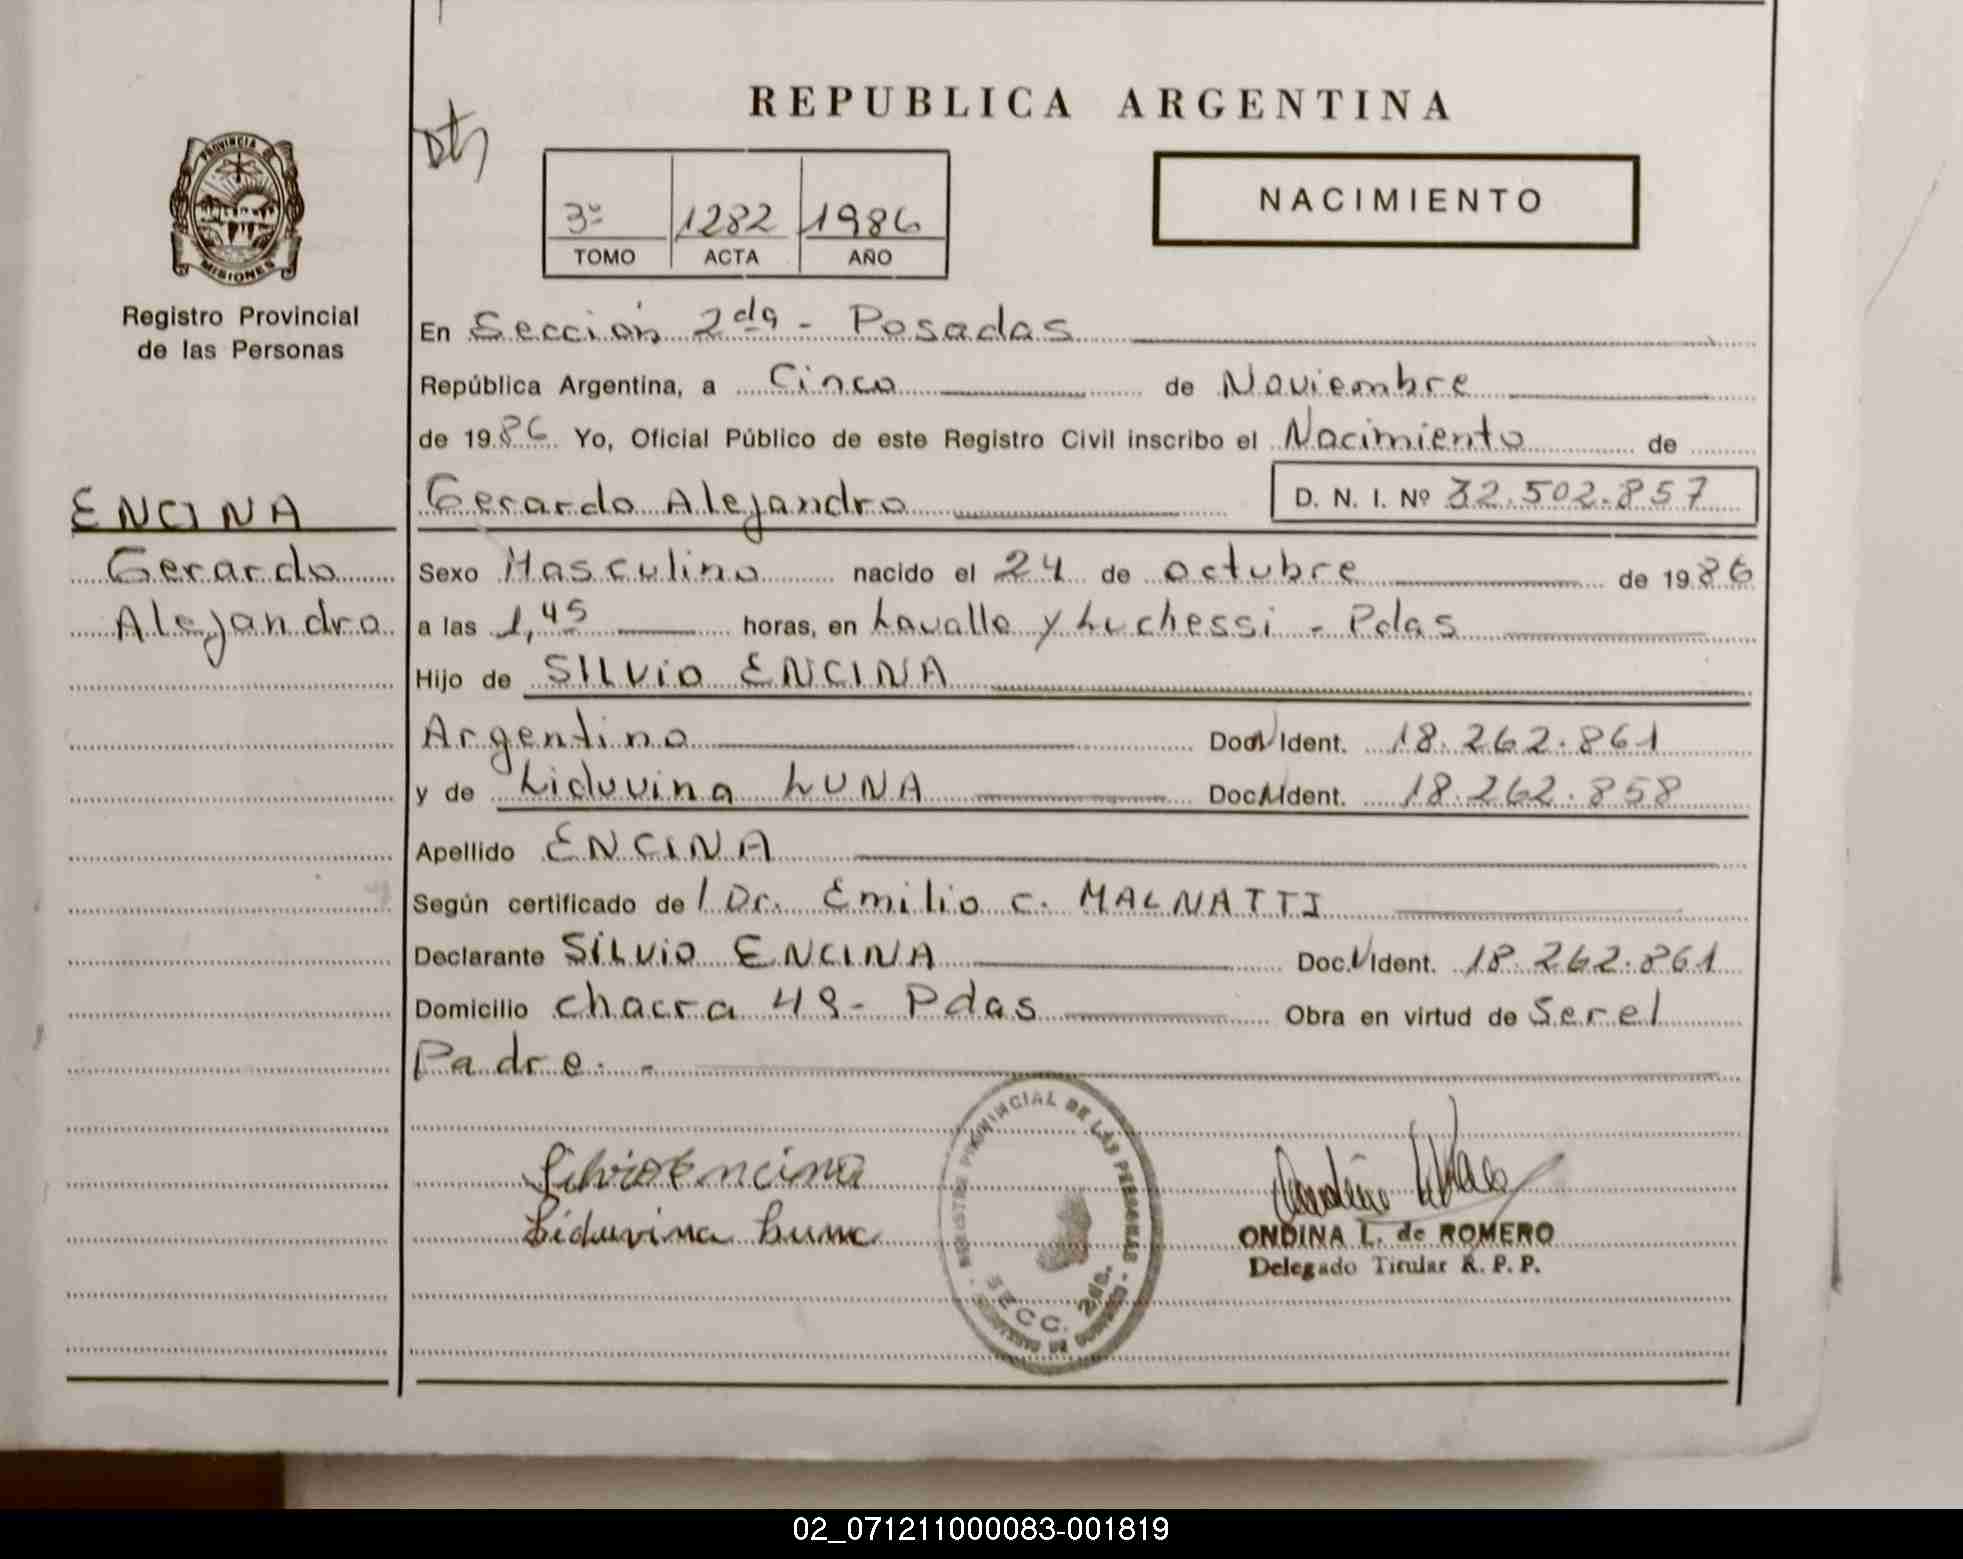 REPUBLICA ARGENTINA
PROVINCIA DE
MISIONES
Registro Provincial
de las Personas
3º 1282 1986
TOMO ACTA AÑO
NACIMIENTO
En Sección 2da - Posadas
República Argentina, a Cinco de Noviembre
de 1986 Yo, Oficial Público de este Registro Civil inscribo el Nacimiento de
ENCINA
Gerardo
Alejandro
Gerardo Alejandro D. N. I. Nº 32.502.857
Sexo Masculino nacido el 24 de octubre de 1986
a las 1,45 horas, en Lavalle y Luchessi - Pdas
Hijo de SILVIO ENCINA
Argentino Doc. Ident. 18.262.861
y de Liduvina LUNA Doc. Ident. 18.262.858
Apellido ENCINA
Según certificado de l Dr. Emilio C. MALNATTI
Declarante SILVIO ENCINA Doc. Ident. 18.262.861
Domicilio chacra 49- Pdas Obra en virtud de Ser el
Padre. -
Silvio Encina
Liduvina Luna
REGISTRO PROVINCIAL DE LAS PERSONAS
SECC. 2da.
ONDINA L. de ROMERO
Delegado Titular R. P. P.
02_071211000083-001819